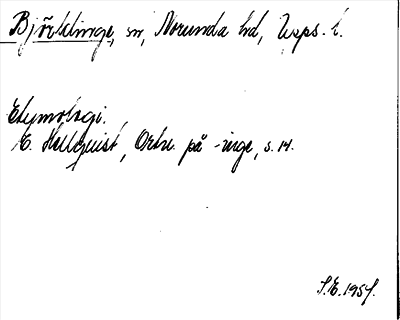 Björklinge, sn, Norunda hd, Upps. l.
Etymologi.
E. Hellquist, Ortn. på -inge, s. 14.
S.E. 1951.